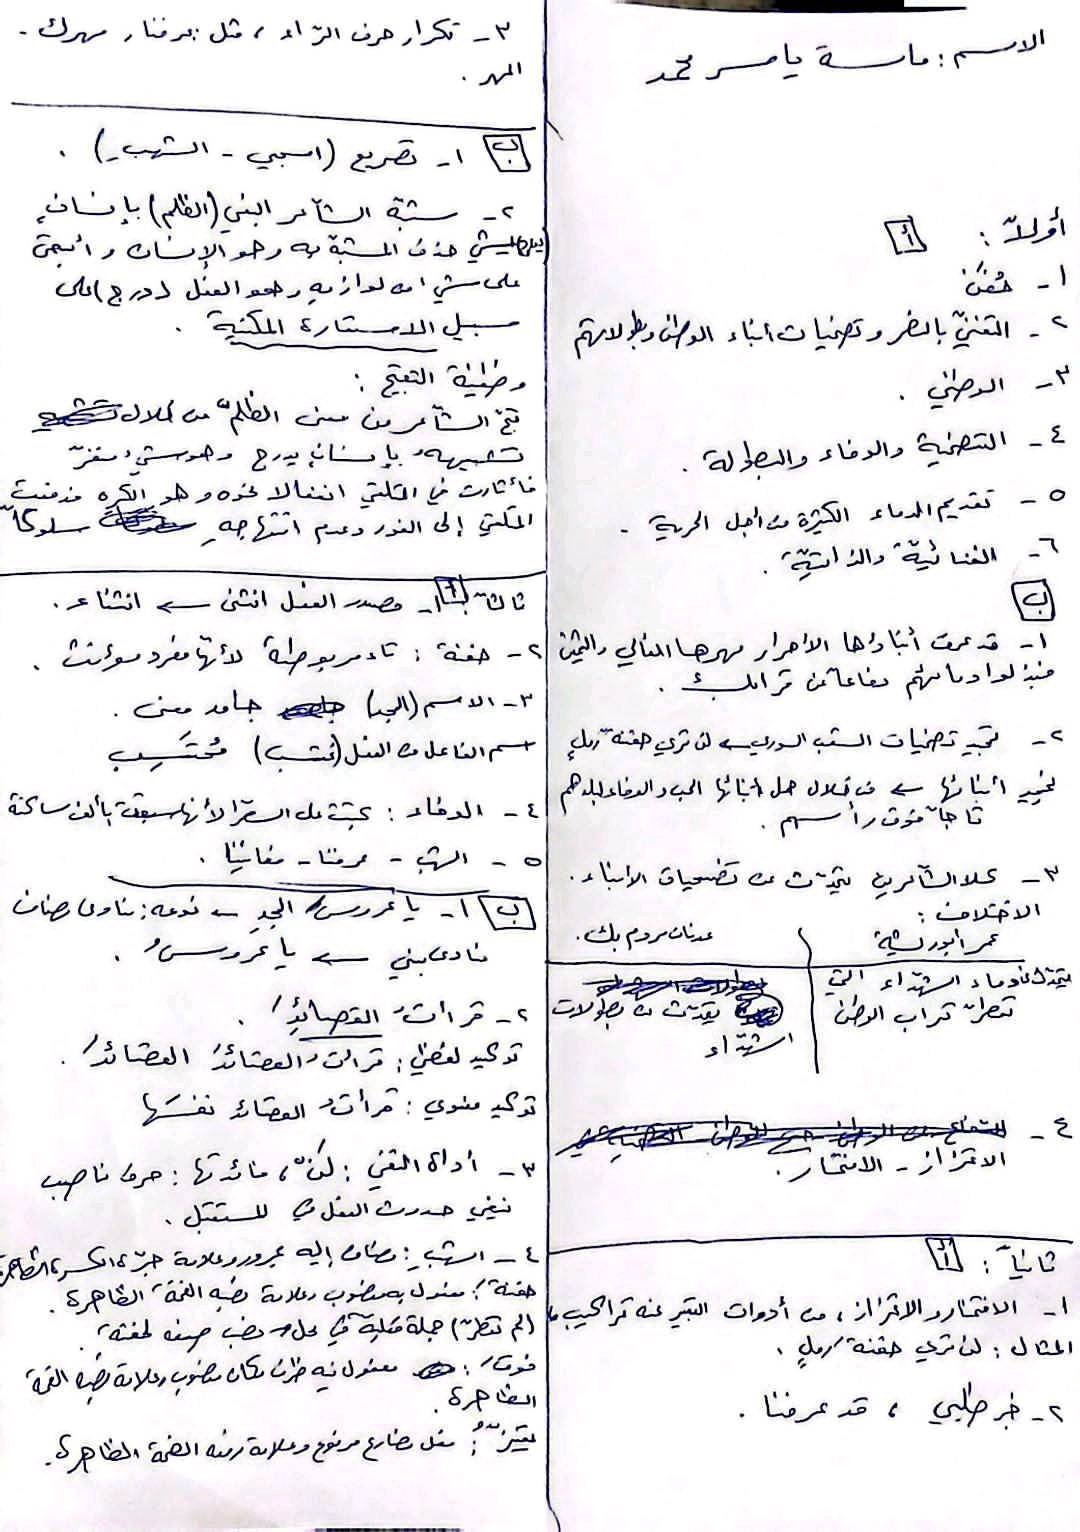 الاسم: ماسة ياسر محمد
أولاً: أ
١- حُفَنٌ
٢- التغنّي بالنصر وتضحيات أبناء الوطن وبطولاتهم
٣- الوطني .
٤- التضحية والوفاء والبطولة .
٥- تقديم الدماء الكثيرة من أجل الحرية .
٦- الغنائيّة والذاتيّة .
ب
١- قد عرف أبناؤها الأحرار مهرها الغالي والثمين
فبذلوا دمائهم دفاعاً عن ترابك .
٢- تمجيد تضحيات الشعب السوري ← لن تري حفنة رملٍ
تمجيد أبنائها ← من خلال حمل أبنائها الحب والوفاء لبلدهم
تاجاً فوق رأسهم .
٣- كلا الشاعرين تحدّث عن تضحيات الأبناء .
الاختلاف :
عمر أبو ريشة
عدنان مردم بك .
يتحدّث عن دماء الشهداء التي
تعطّر تراب الوطن
يتحدّث عن بطولات
الشهداء
٤-
الاعتزاز - الافتخار .
ثانياً: أ
١- الافتخار والاعتزاز، من أدوات التعبير عنه تراكيب
المثال: لن تري حفنة رملٍ .
٢- خبر طلبي ، قد عرفنا .
٣- تكرار حرف الرّاء ، مثل: عرفنا، مهرك -
المهر .
ب ١- تصريع (اسحبي - الشهب) .
٢- شبّه الشاعر البغي (الظلم) بإنسانٍ
يمشي حذف المشبّه به وهو الإنسان وأبقى
على شيء من لوازمه وهو الفعل (درج) على
سبيل الاستعارة المكنية .
وظيفة التقبيح :
قبّح الشاعر من معنى الظلم من خلال
تشبيهه بإنسانٍ يدرج وهو شيء منفّر
فأثارت في المتلقي انفعالا نحوه وهو الكره فدفعت
المتلقي إلى النفور وعدم انتهاجه سلوكاً
ثالثاً أ ١- مصدر الفعل انثنى ← انثناء .
٢- حفنة : تاء مربوطة لأنها مفرد مؤنث .
٣- الاسم (المجد) جامد معنى .
اسم الفاعل من الفعل (تحتسب) مُحتَسِب
٤- الدماء : كتبت على السطر لأنها سبقت بألف ساكنة
٥- الشهب - عرفنا - مغانينا .
ب ١- يا عروسَ المجدِ ← نوعه: منادى مضاف
منادى مبني ← يا عروسُ .
٢- قرأتُ القصائدَ .
توكيد لفظي: قرأتُ القصائدَ القصائدَ .
توكيد معنوي: قرأتُ القصائدَ نفسَها
٣- أداة النفي: لنْ ، فائدتها: حرف ناصب
نفي حدوث الفعل في المستقبل .
٤- الشهبِ: مضاف إليه مجرور وعلامة جرّه الكسرة الظاهرة
حفنةَ: مفعول به منصوب وعلامة نصبه الفتحة الظاهرة .
(لم تعطّر) جملة فعلية في محل نصب صفة لحفنة .
فوقَ: مفعول فيه ظرف مكان منصوب وعلامة نصبه الفتحة
الظاهرة .
فعل مضارع مرفوع وعلامة رفعه الضمة الظاهرة .